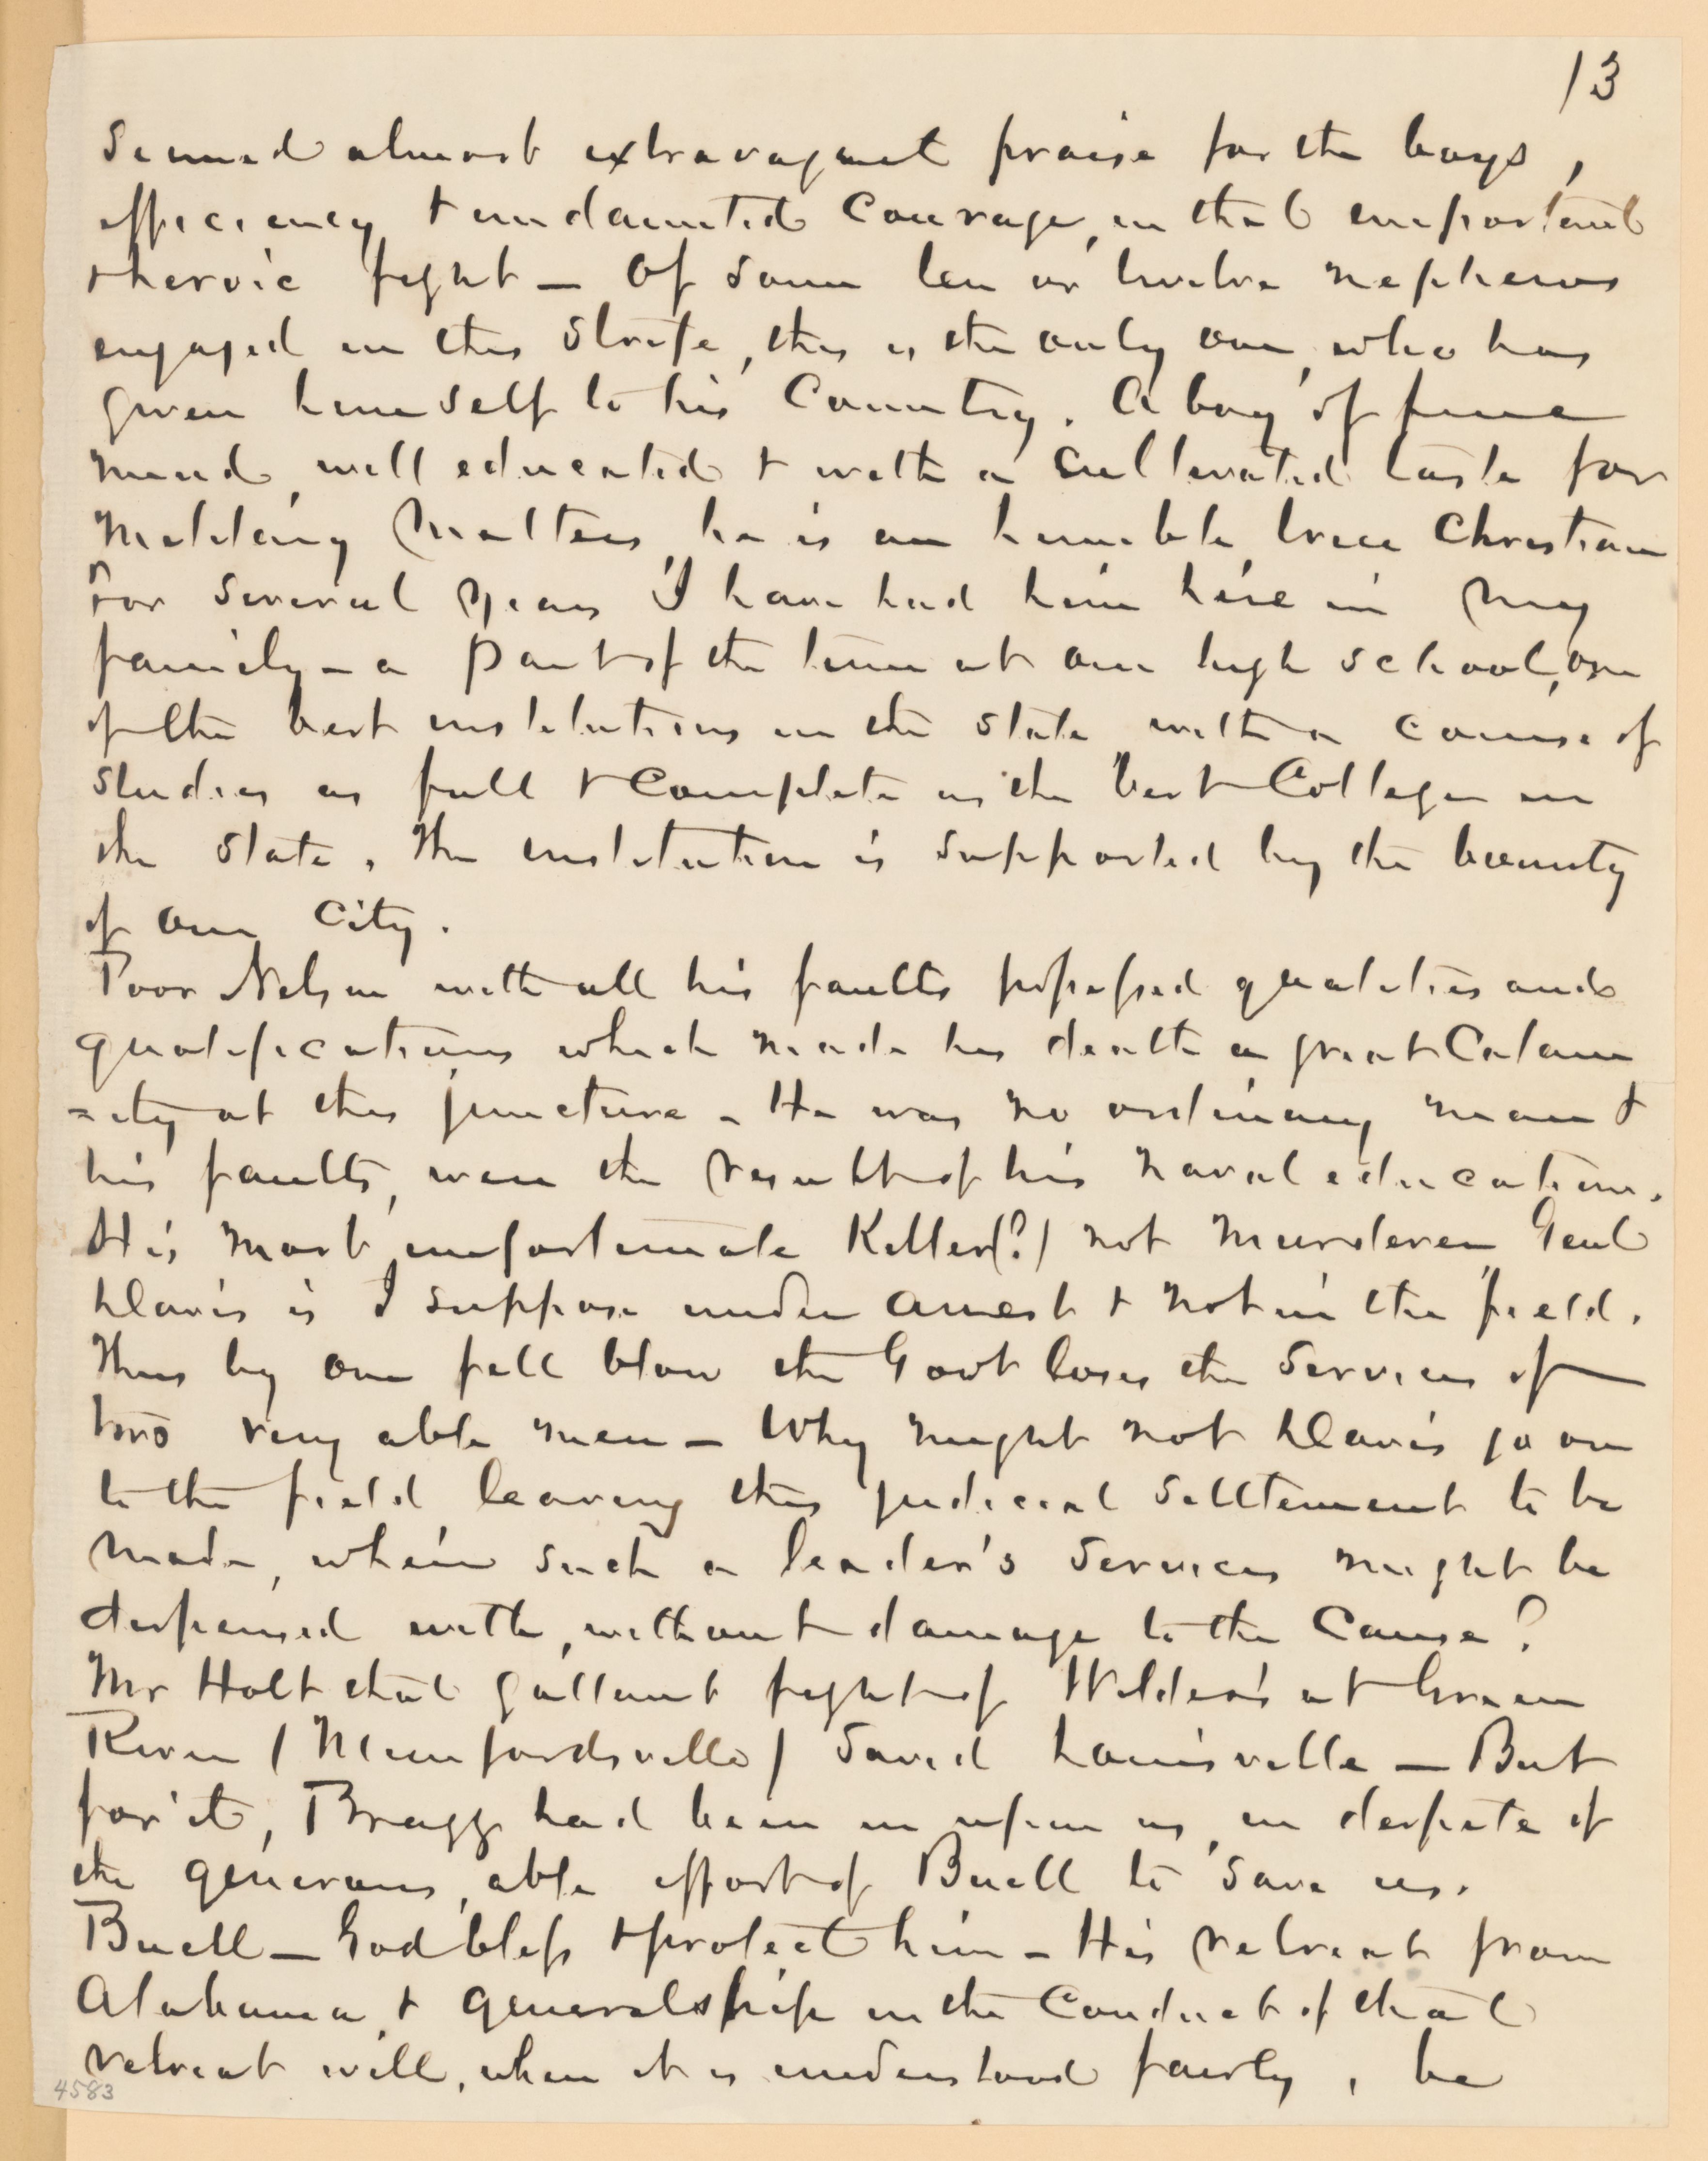 13
seemed almost extravagant praise for the boys,
efficiency & undaunted Courage, in that important
& heroic fight — Of some ten or twelve nephews
engaged in this Strife, this is the only one, who has
given himself to his Country. A boy of fine
mind, well educated & with a cultivated taste for
Military Matters, he is an humble true Christian
For several years I have had him here in my
family — a part of the time at our high school, one
of the best institutions in the state with a course of
studies as full & Complete as the best College in
the State. The institution is supported by the bounty
of our City.
Poor Nelson with all his faults possessed qualities and
qualifications which made his death a great Calam
=ity at this juncture - He was no ordinary man &
his faults, were the result of his naval education.
His most unfortunate Killer(?) not Murderer, Genl
Davis is I suppose under arrest & not in the field.
Thus by one fell blow the Govt loses the Services of
two very able men — Why might not Davis go on
to the field leaving this judicial settlement to be
made, when such a leader's services might be
dispensed with, without damage to the Cause?
Mr Holt that gallant fight of Wilder's at Green
River (Munfordsville) saved Louisville — But
for it, Bragg had been in upon us, in despite of
the generous, able effort of Buell to save us.
Buell — God bless & protect him - His retreat from
Alabama, & generalship in the Conduct of that
retreat will, when it is understood fairly, be
4583